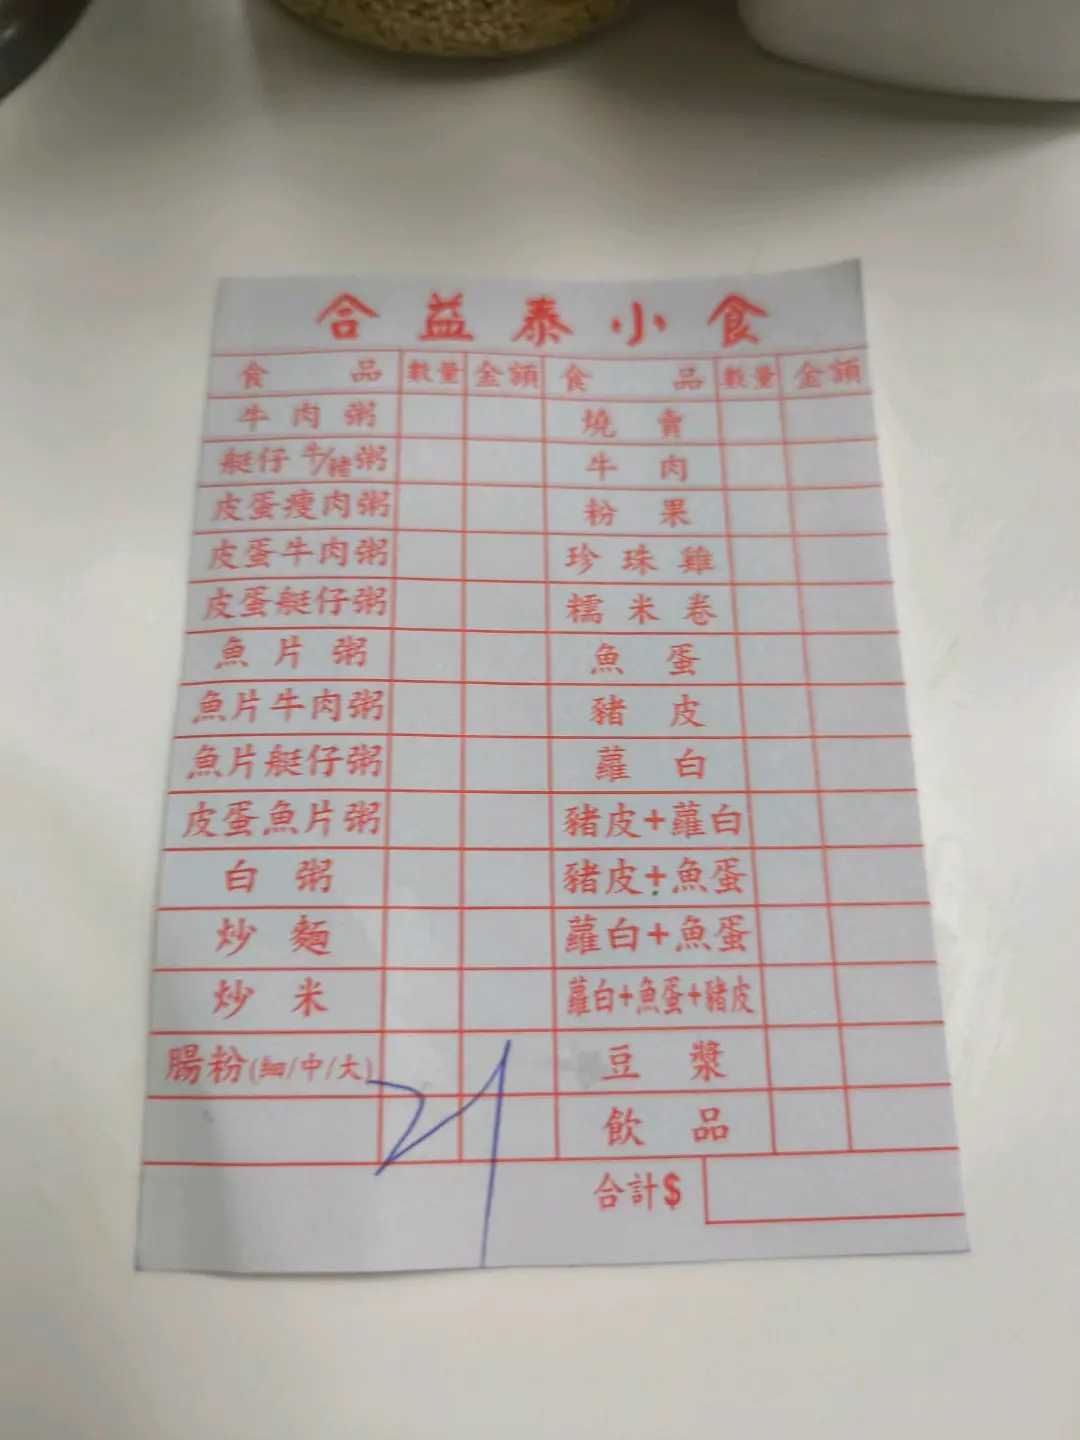 合益泰小食
食品 數量 金額 食品 數量 金額
牛肉粥 燒賣
艇仔牛/豬粥 牛肉
皮蛋瘦肉粥 粉果
皮蛋牛肉粥 珍珠雞
皮蛋艇仔粥 糯米卷
魚片粥 魚蛋
魚片牛肉粥 豬皮
魚片艇仔粥 蘿白
皮蛋魚片粥 豬皮+蘿白
白粥 豬皮+魚蛋
炒麵 蘿白+魚蛋
炒米 蘿白+魚蛋+豬皮
腸粉(細/中/大) 豆漿
飲品
21
合計$